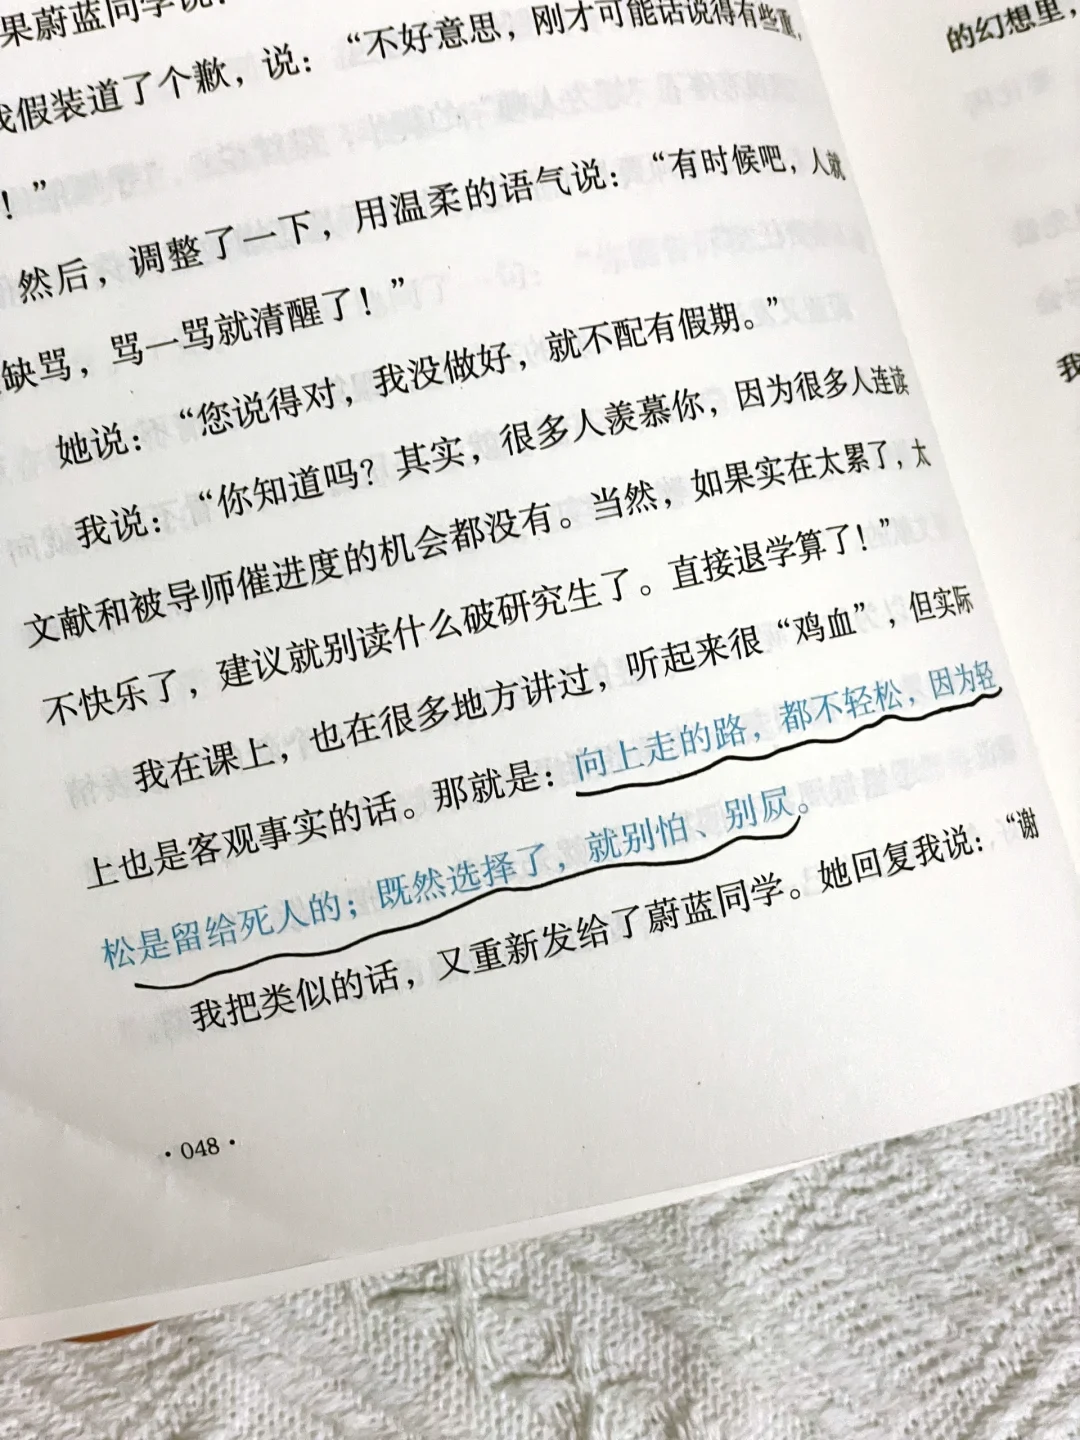 果蔚蓝同学说：
我假装道了个歉，说：“不好意思，刚才可能话说得有些重，
！”
然后，调整了一下，用温柔的语气说：“有时候吧，人就
缺骂，骂一骂就清醒了！”
她说：“您说得对，我没做好，就不配有假期。”
我说：“你知道吗？其实，很多人羡慕你，因为很多人连读
文献和被导师催进度的机会都没有。当然，如果实在太累了，太
不快乐了，建议就别读什么破研究生了。直接退学算了！”
我在课上，也在很多地方讲过，听起来很“鸡血”，但实际
上也是客观事实的话。那就是：向上走的路，都不轻松，因为轻
松是留给死人的；既然选择了，就别怕、别㞞。
我把类似的话，又重新发给了蔚蓝同学。她回复我说：“谢
· 048 ·
的幻想里，
我